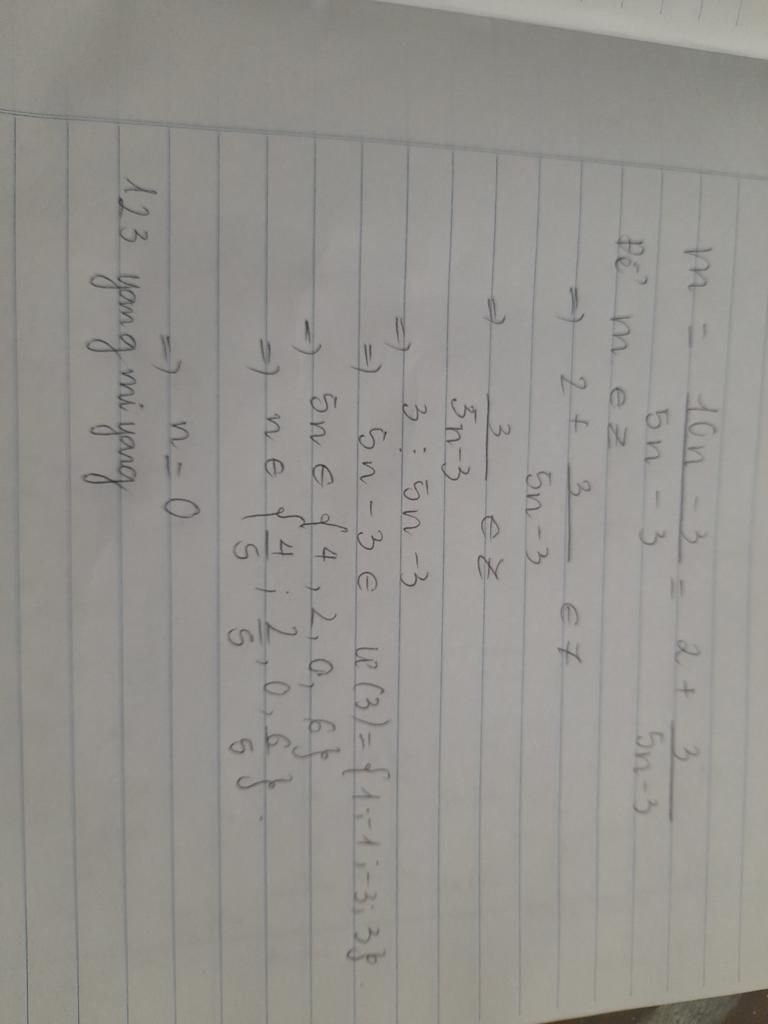 m = 10n - 3 / 5n - 3 = 2 + 3 / 5n-3
Để m ∈ Z
=) 2 + 3 / 5n-3 ∈ Z
=) 3 / 5n-3 ∈ Z
=) 3 ⋮ 5n-3
=) 5n-3 ∈ Ư(3)={1;-1;-3;3}.
=) 5n ∈ {4,2,0,6}
=) n ∈ {4/5; 2/5, 0, 6/5}.
=) n=0
123 yang mi yang